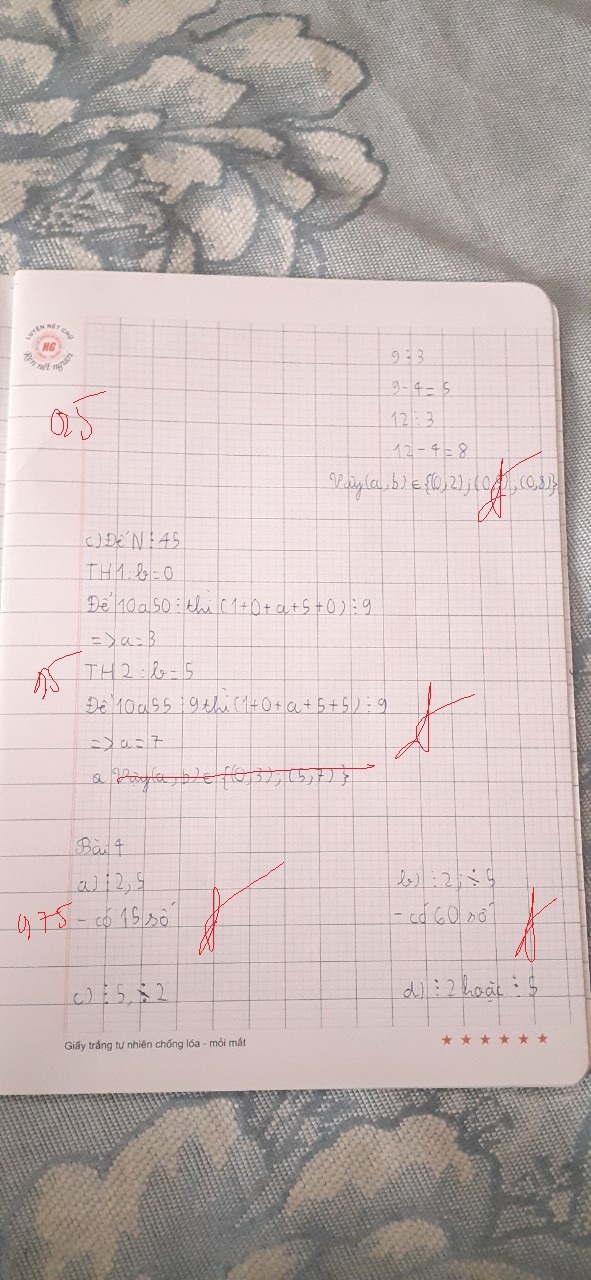 LUYỆN NÉT CHỮ
HG
Rèn nết người
9 ⋮ 3
9-4 = 5
12 ⋮ 3
12-4 = 8
0,5
Vậy (a, b) ∈ {(0, 2); (0, ); (0,8)}
c) Để N ⋮ 45
TH1: b=0
Để 10a50 ⋮ thì (1+0+a+5+0) ⋮ 9
=> a=3
TH2: b=5
Để 10a55 ⋮ 9 thì (1+0+a+5+5) ⋮ 9
=> a=7
a Vậy (a, b) ∈ {(0,3); (5,7)}
Bài 4
a) ⋮ 2, 5
b) ⋮ 2, ⋮̸ 5
0,75 - có 15 số
- có 60 số
c) ⋮ 5, ⋮̸ 2
d) ⋮ 2 hoặc ⋮ 5
Giấy trắng tự nhiên chống lóa - mỏi mắt